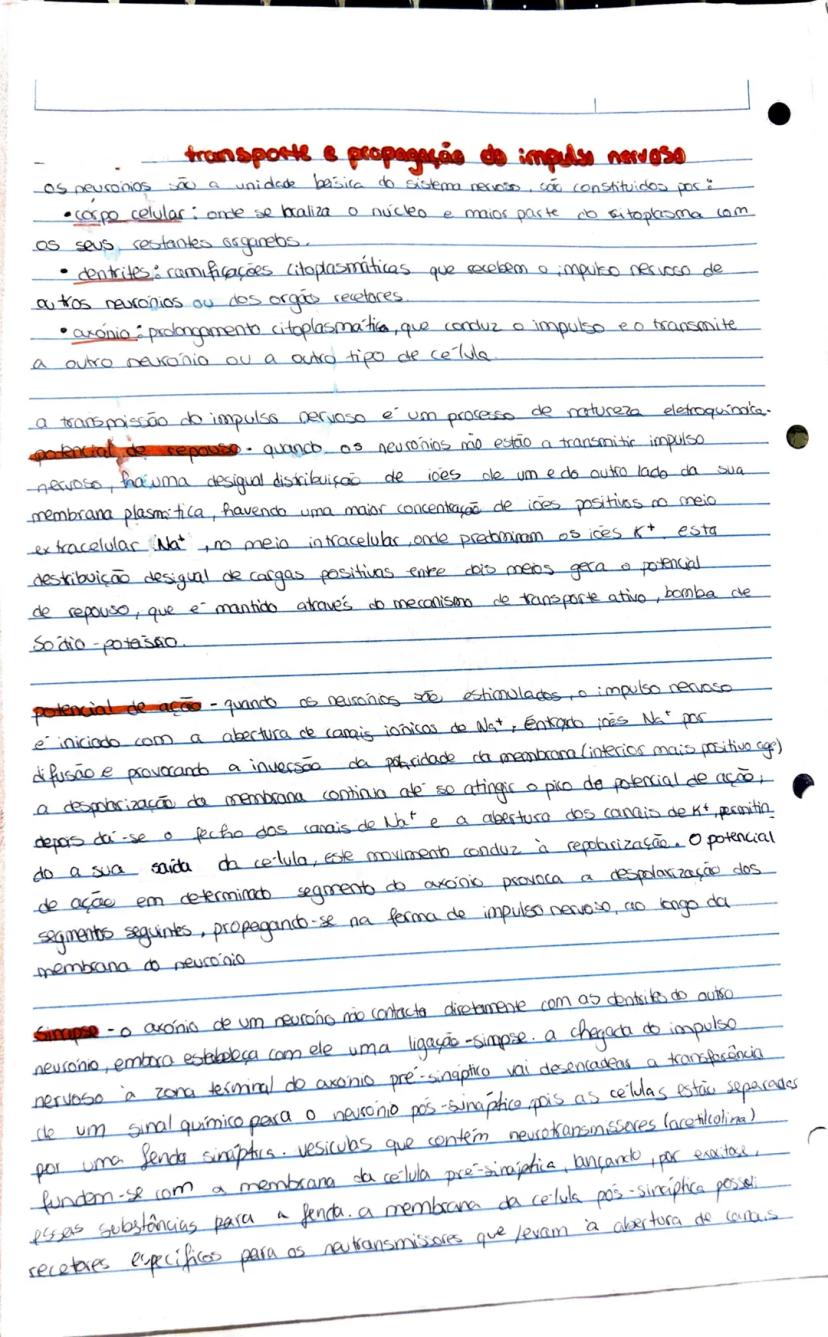 transporte e propagação do impulso nervoso
os neurónios são a unidade básica do sistema nervoso, são constituidos por:
• corpo celular: onde se localiza o núcleo e maior parte do citoplasma com
os seus restantes organelos.
• dentrites: ramificações citoplasmáticas que recebem o impulso nervoso de
outros neurónios ou dos orgãos recetores.
• axónio: prolongamento citoplasmático, que conduz o impulso e o transmite
a outro neurónio ou a outro tipo de célula.
a transmissão do impulso nervoso é um processo de natureza eletroquímica.
potencial de repouso - quando os neurónios não estão a transmitir impulso
nervoso, há uma desigual distribuição de iões de um e do outro lado da sua
membrana plasmática, havendo uma maior concentração de iões positivos no meio
extracelular Na⁺, no meio intracelular, onde predominam os iões K⁺. esta
destribuição desigual de cargas positivas entre dois meios gera o potencial
de repouso, que é mantido através do mecanismo de transporte ativo, bomba de
Sódio-potássio.
potencial de ação - quando os neurónios são estimulados, o impulso nervoso
é iniciado com a abertura de canais iónicos de Na⁺, iões Na⁺ por
difusão e provocando a inversão da polaridade da membrana (interior mais positivo
a despolarização da membrana continua até so atingir o pico do potencial de ação,
depois dá-se o fecho dos canais de Na⁺ e a abertura dos canais de K⁺, permitin
do a sua saída da célula, este movimento conduz à repolarização. O potencial
de ação em determinado segmento do axónio provoca a despolarização dos
segmentos seguintes, propegando-se na forma de impulso nervoso, ao longo da
membrana do neurónio
Sinapse - o axónio de um neurónio não contacta diretamente com as dentrites do outro
neurónio, embora estabeleça com ele uma ligação-sinapse. a chegada do impulso
nervoso à zona terminal do axónio pré-sináptico vai desencadear a transferência
de um sinal químico para o neurónio pós-sináptico, pois as células estão separadas
por uma fenda sináptica. vesiculas que contêm neurotransmissores (acetilcolina)
fundem-se com a membrana da célula pré-sináptica, lançando, por exocitose,
essas substâncias para a fenda. a membrana da célula pós-sináptica possui
recetores específicos para os neutransmissores que levam à abertura de canais